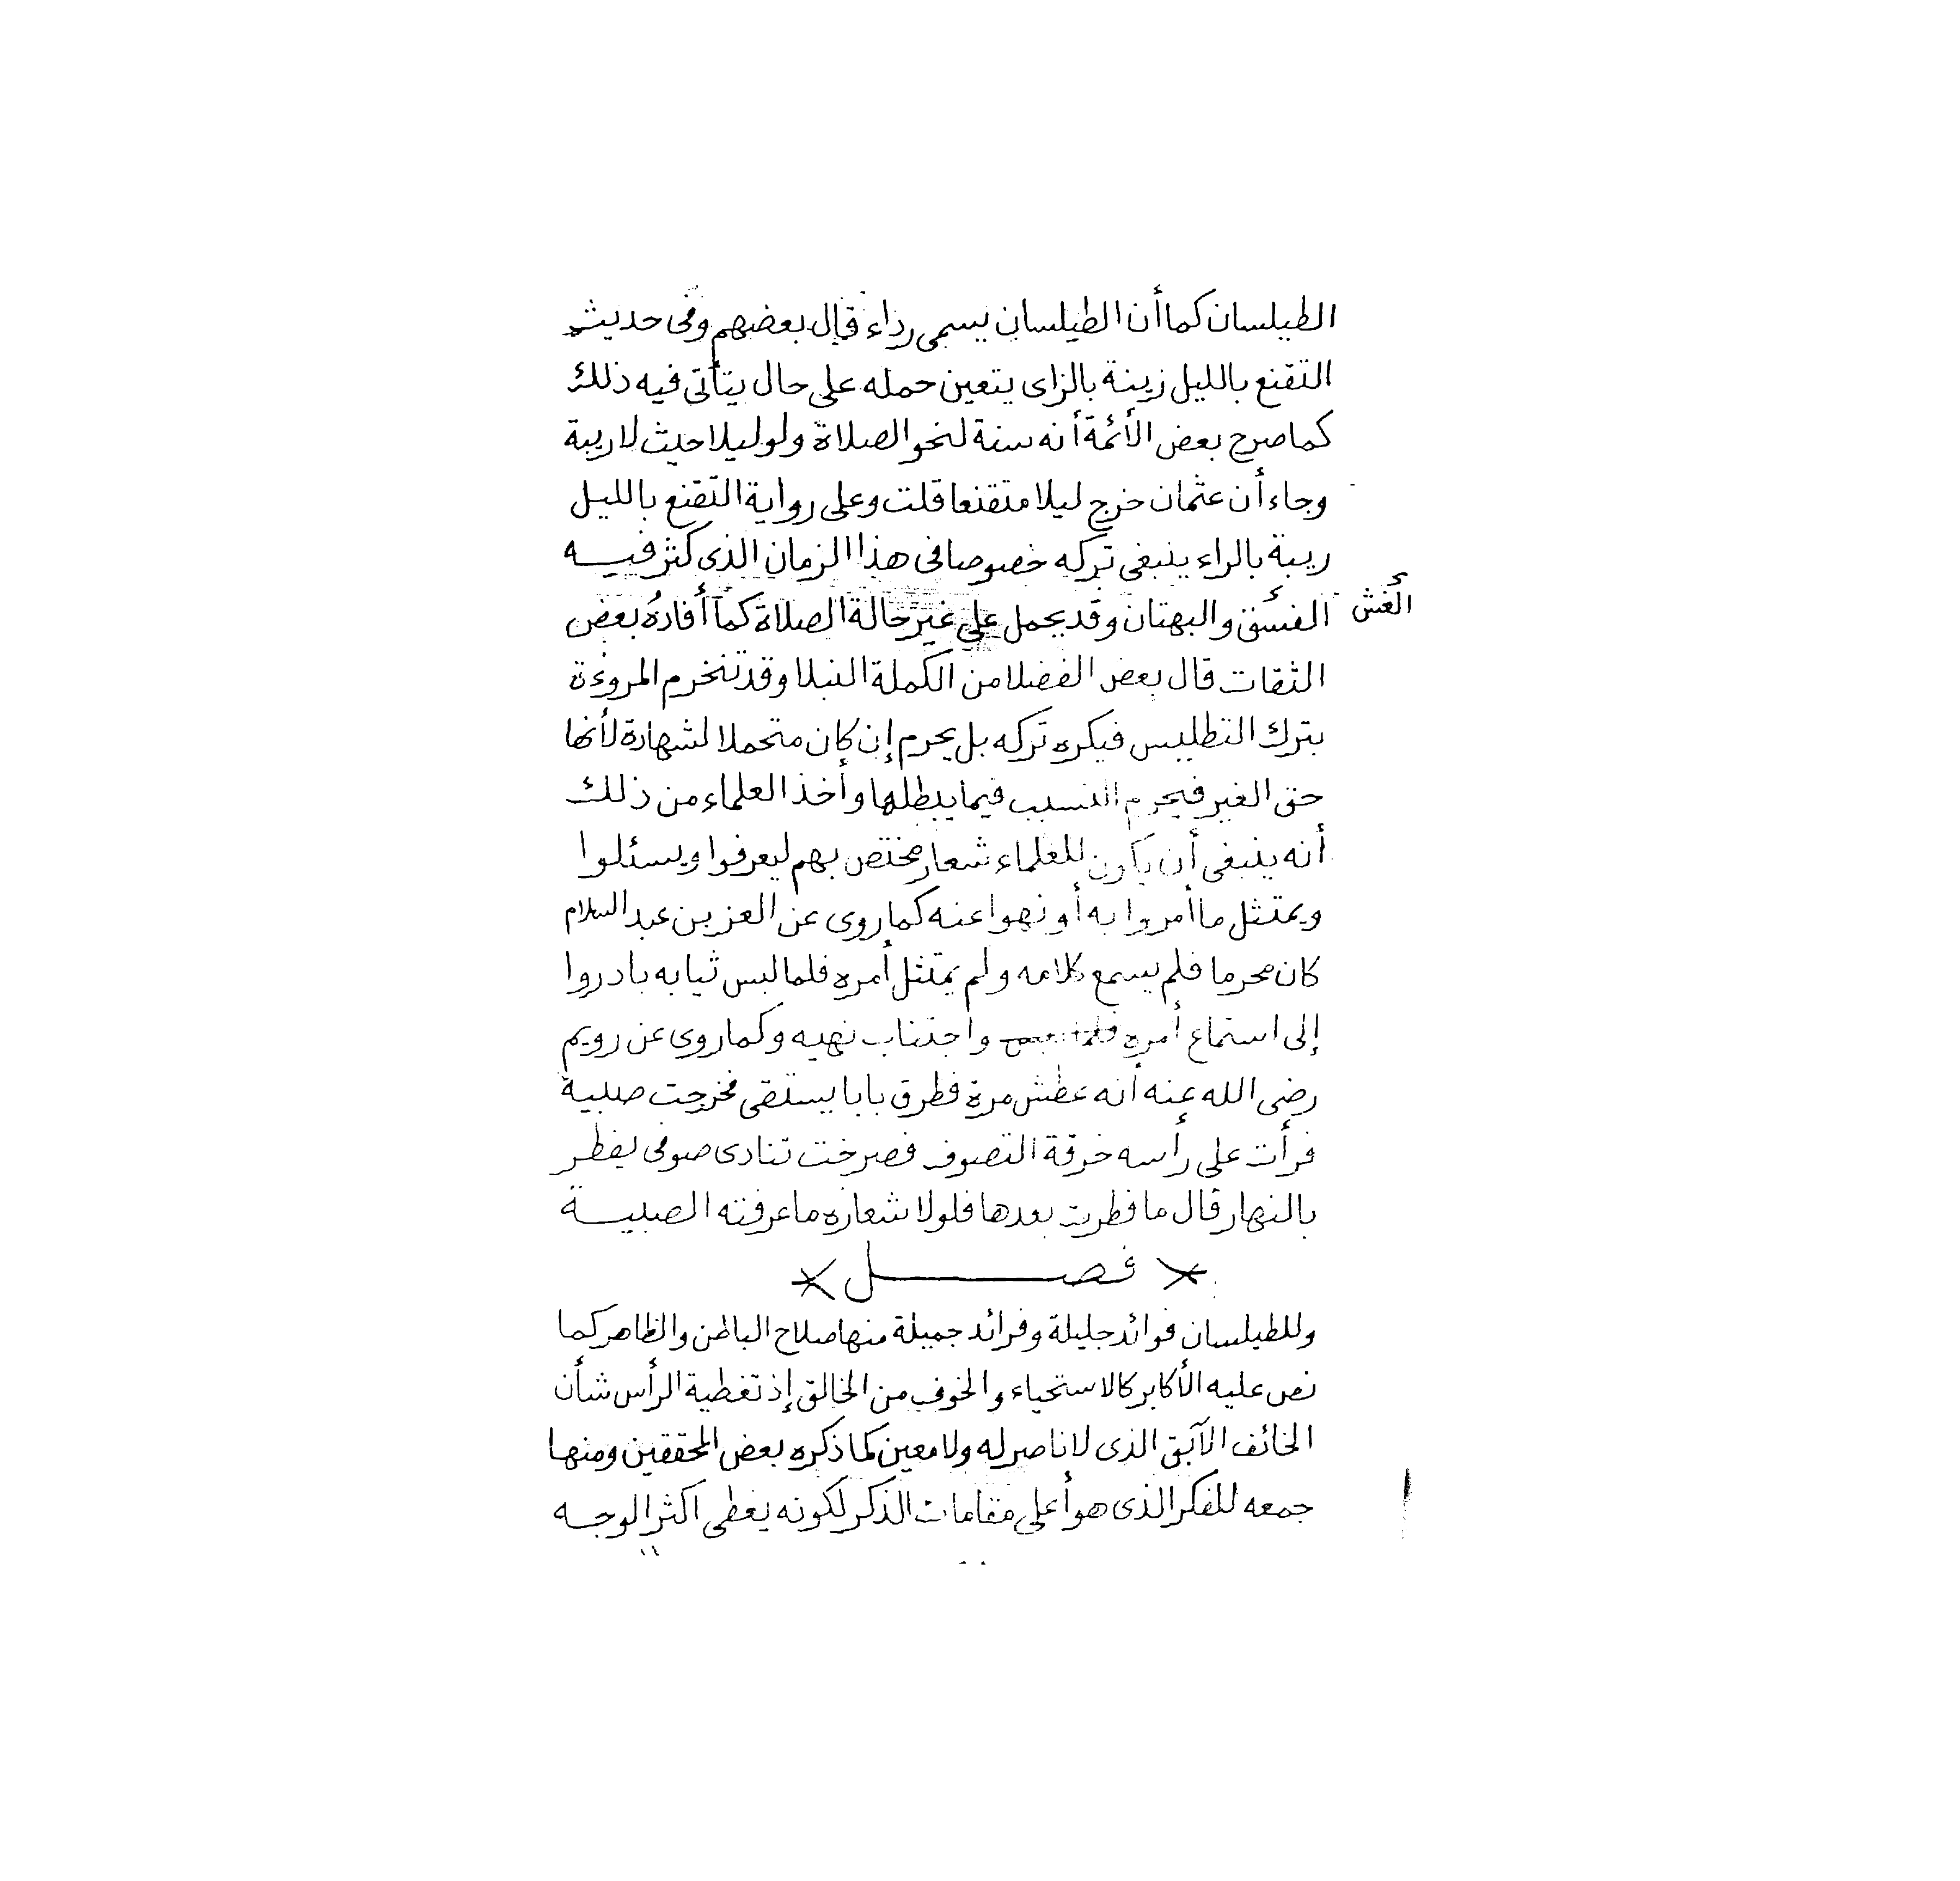 الطيلسان كما أن الطيلسان يسمى رداء قال بعضهم وفى حديث
التقنع بالليل زينة بالزاى يتعين حمله على حال يتأتى فيه ذلك
كما صرح بعض الأئمة أنه سنة لنحو الصلاة ولو ليلا حيث لا ريبة
وجاء أن عثمان خرج ليلا متقنعا قلت وعلى رواية التقنع بالليل
ريبة بالراء ينبغى تركه خصوصا فى هذا الزمان الذى كثر فيه
الغش
الفسق والبهتان وقد يحمل على غير حالة الصلاة كما أفاده بعض
الثقات قال بعض الفضلا من الكملة النبلا وقد تنخرم المروءة
بترك التطليس فيكره تركه بل يحرم إن كان متحملا لشهادة لأنها
حق الغير فيحرم التسبب فيما يبطلها وأخذ العلماء من ذلك
أنه ينبغى أن يكون للعلماء شعار مختص بهم ليعرفوا ويسئلوا
ويمتثل ما أمروا به أو نهوا عنه كما روى عن العز بن عبد السلام
كان محرما فلم يسمع كلامه ولم يمتثل أمره فلما لبس ثيابه بادروا
إلى استماع أمره واجتناب نهيه وكما روى عن رويم
رضى الله عنه أنه عطش مرة فطرق بابا يستقى فخرجت صبية
فرأت على رأسه خرقة التصوف فصرخت تنادى صوفى يفطر
بالنهار قال ما فطرت بعدها فلولا شعاره ما عرفته الصبية
فصل
وللطيلسان فوائد جليلة وفرائد جميلة منها صلاح الباطن والظاهر كما
نص عليه الأكابر كالاستحياء والخوف من الخالق إذ تغطية الرأس شأن
الخائف الآبق الذى لا ناصر له ولا معين كما ذكره بعض المحققين ومنها
جمعه للفكر الذى هو أعلى مقامات الذكر لكونه يغطى اكثر الوجه